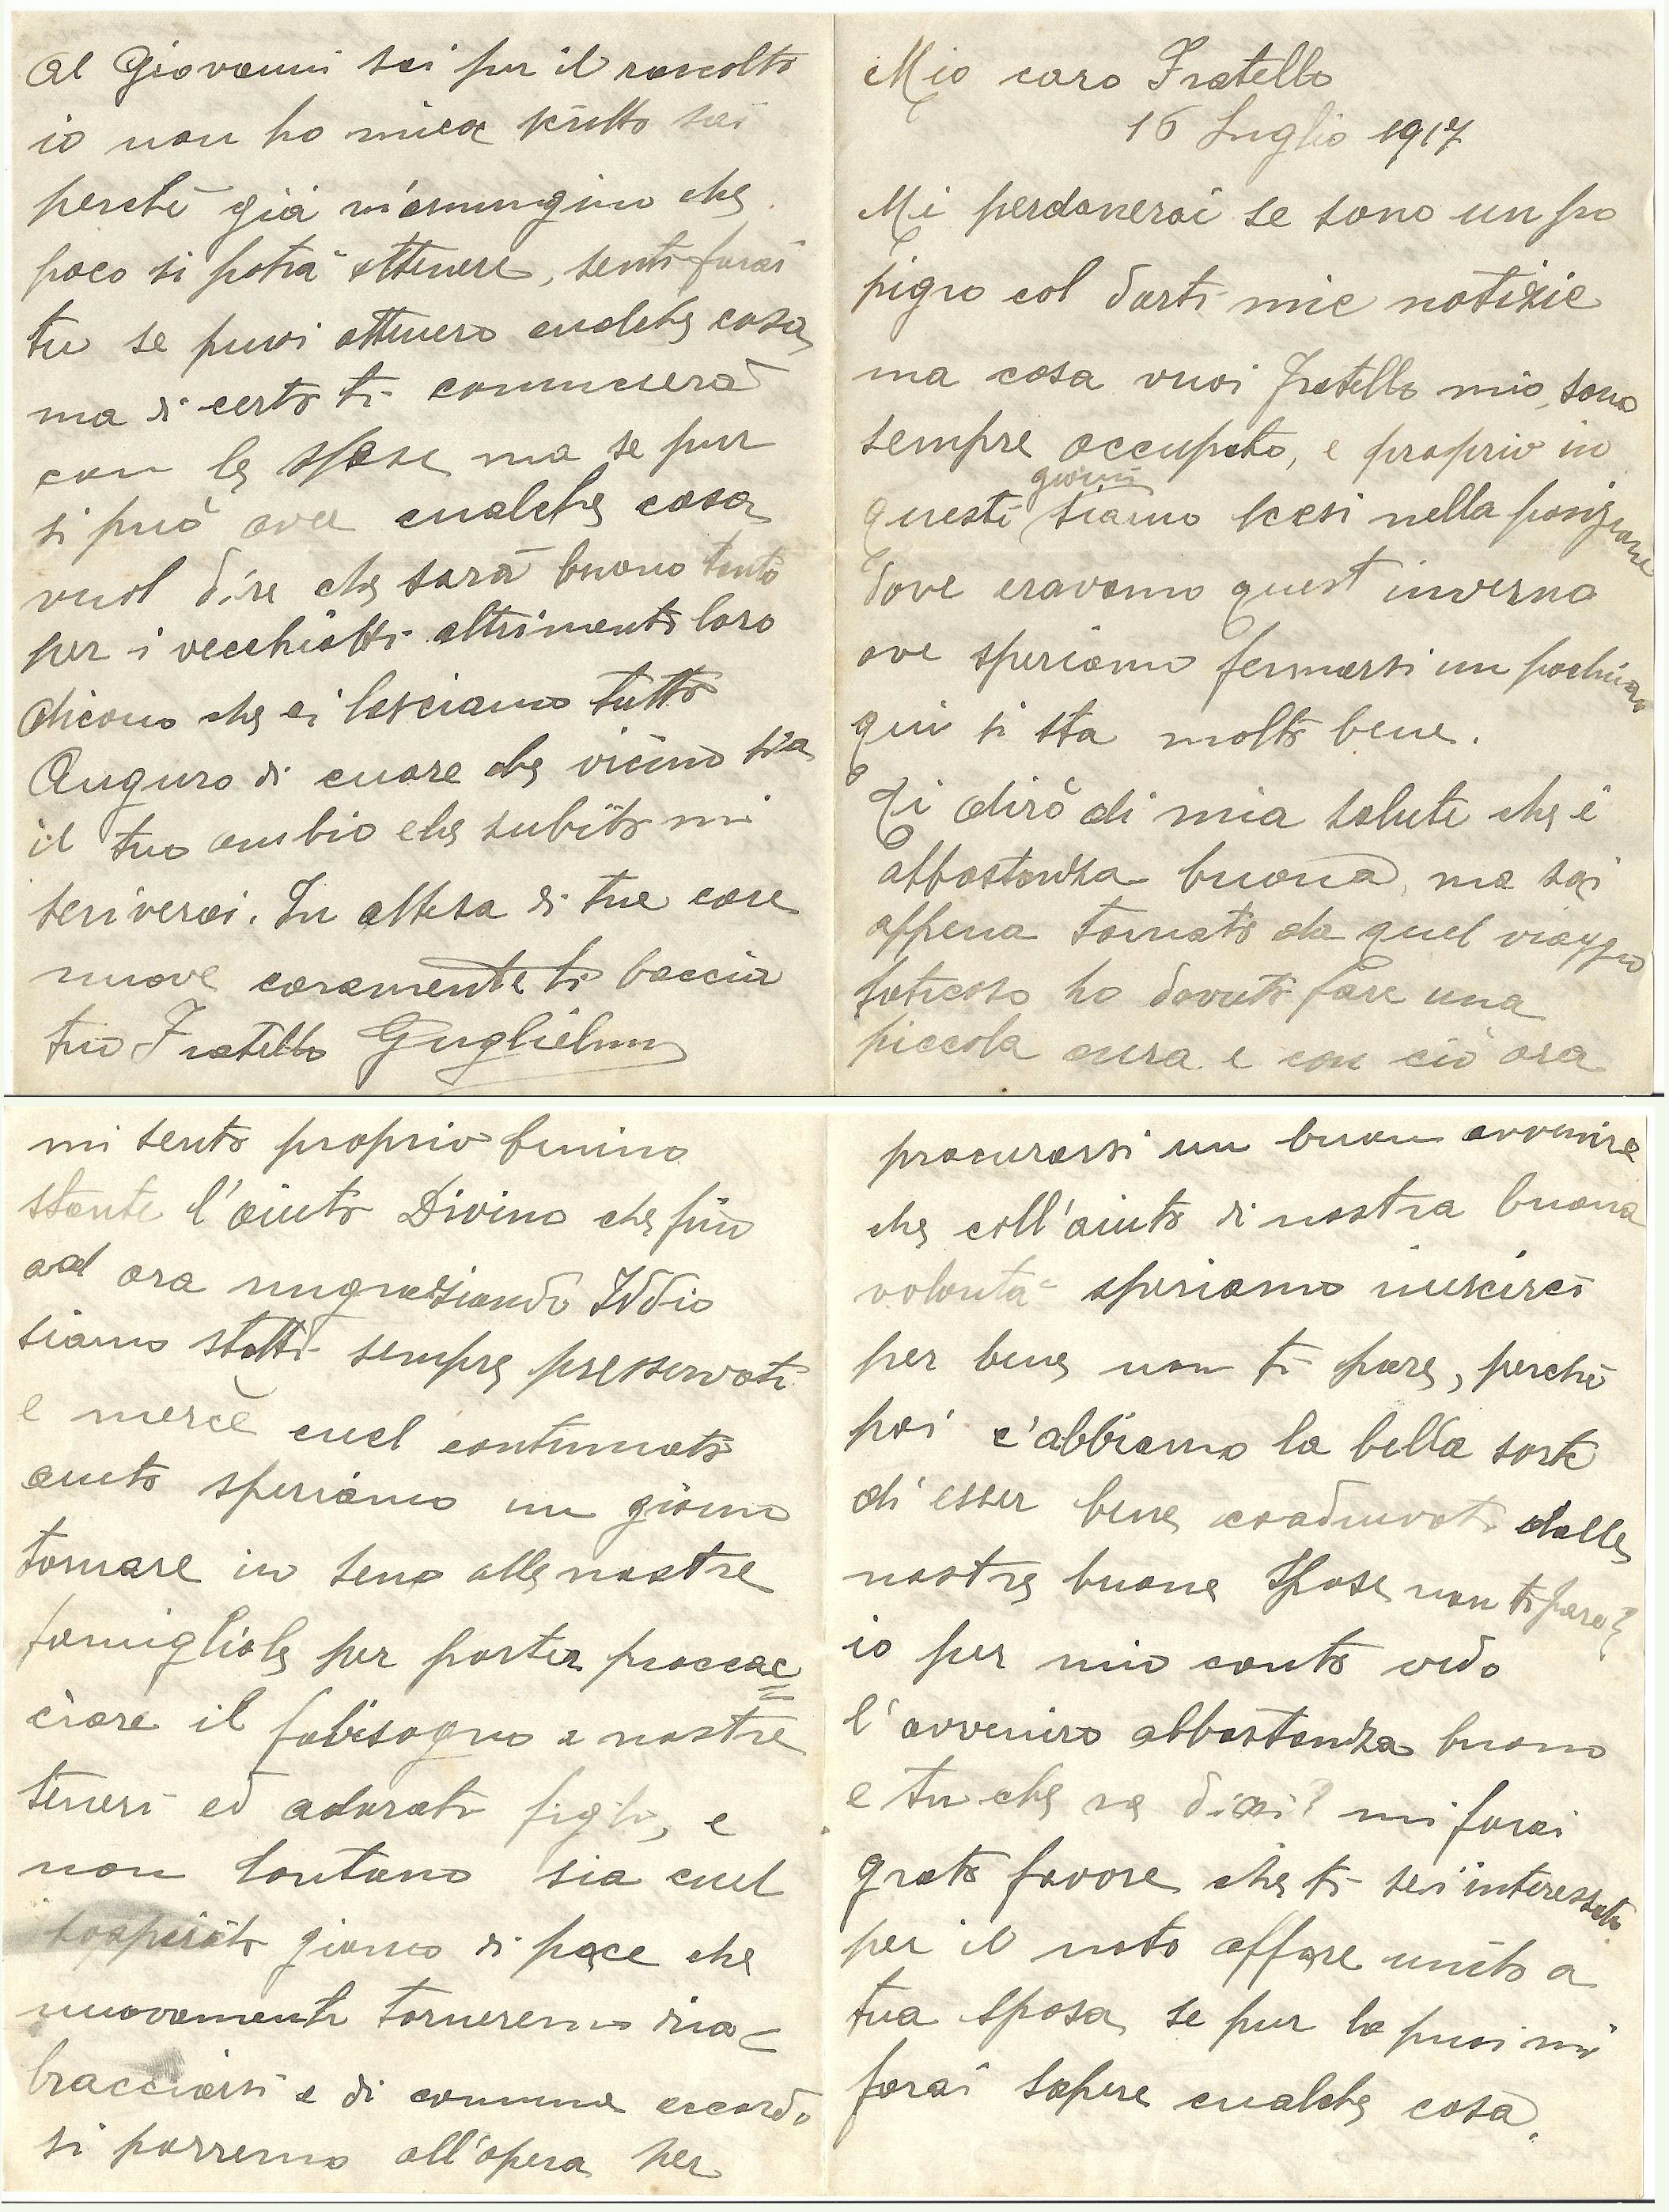 Mio caro Fratello
16 Luglio 1917
Mi perdonerai se sono un po
pigro col darti mie notizie
ma cosa vuoi fratello mio, sono
sempre occupato, e proprio in
questi giorni siamo scesi nella posizione
dove eravamo quest inverno
ove speriamo fermarsi un pochino
qui si sta molto bene.
Ti dirò di mia salute che è
abbastanza buona, ma sai
appena tornato da quel viaggio
faticoso ho dovuto fare una
piccola cura e con ciò ora
mi sento proprio benino
stante l'aiuto Divino che fin
ad ora ringraziando Iddio
siamo statti sempre presservati
e mercè cuel continuato
aiuto speriamo un giorno
tornare in seno alle nostre
famigliole per poster proccac=
ciare il fabisogno a nostre
teneri ed adorati figli, e
non lontano sia cuel
sospirato giorno di pace che
nuovamente torneremo ria-
bracciarsi e di comune accordo
si porremo all'opera per
procurarsi un buon avvenire
che coll'aiuto di nostra buona
volontà speriamo riuscirci
per bene non ti pare, perchè
poi c'abbiamo la bella sorte
di esser bene coadiuvati dalle
nostre buone Spose non ti pare?
io per mio conto vedo
l'avveniro abbastanza buono
e tu che ne dici? mi farai
grato favore che ti sei interessato
per il noto affare unito a
tua sposa, se pur lo puoi mi
farai sapere cualche cosa.
Al Giovanni sai per il raccolto
io non ho mica scritto sai
perchè già m'immagino che
poco si potrà ottenere, senti farai
tu se puoi ottenero cualche cosa,
ma di certo ti comincierà
con le spese ma se pur
si può aver cualche cosa
vuol dire che sarà buono tanto
per i vecchiotti altrimenti loro
dicono che ci lasciamo tutto
Auguro di cuore che vicino sia
il tuo cambio che subito mi
scriverai. In attesa di tue care
nuove caramente ti baccia
tuo Fratello Guglielmo